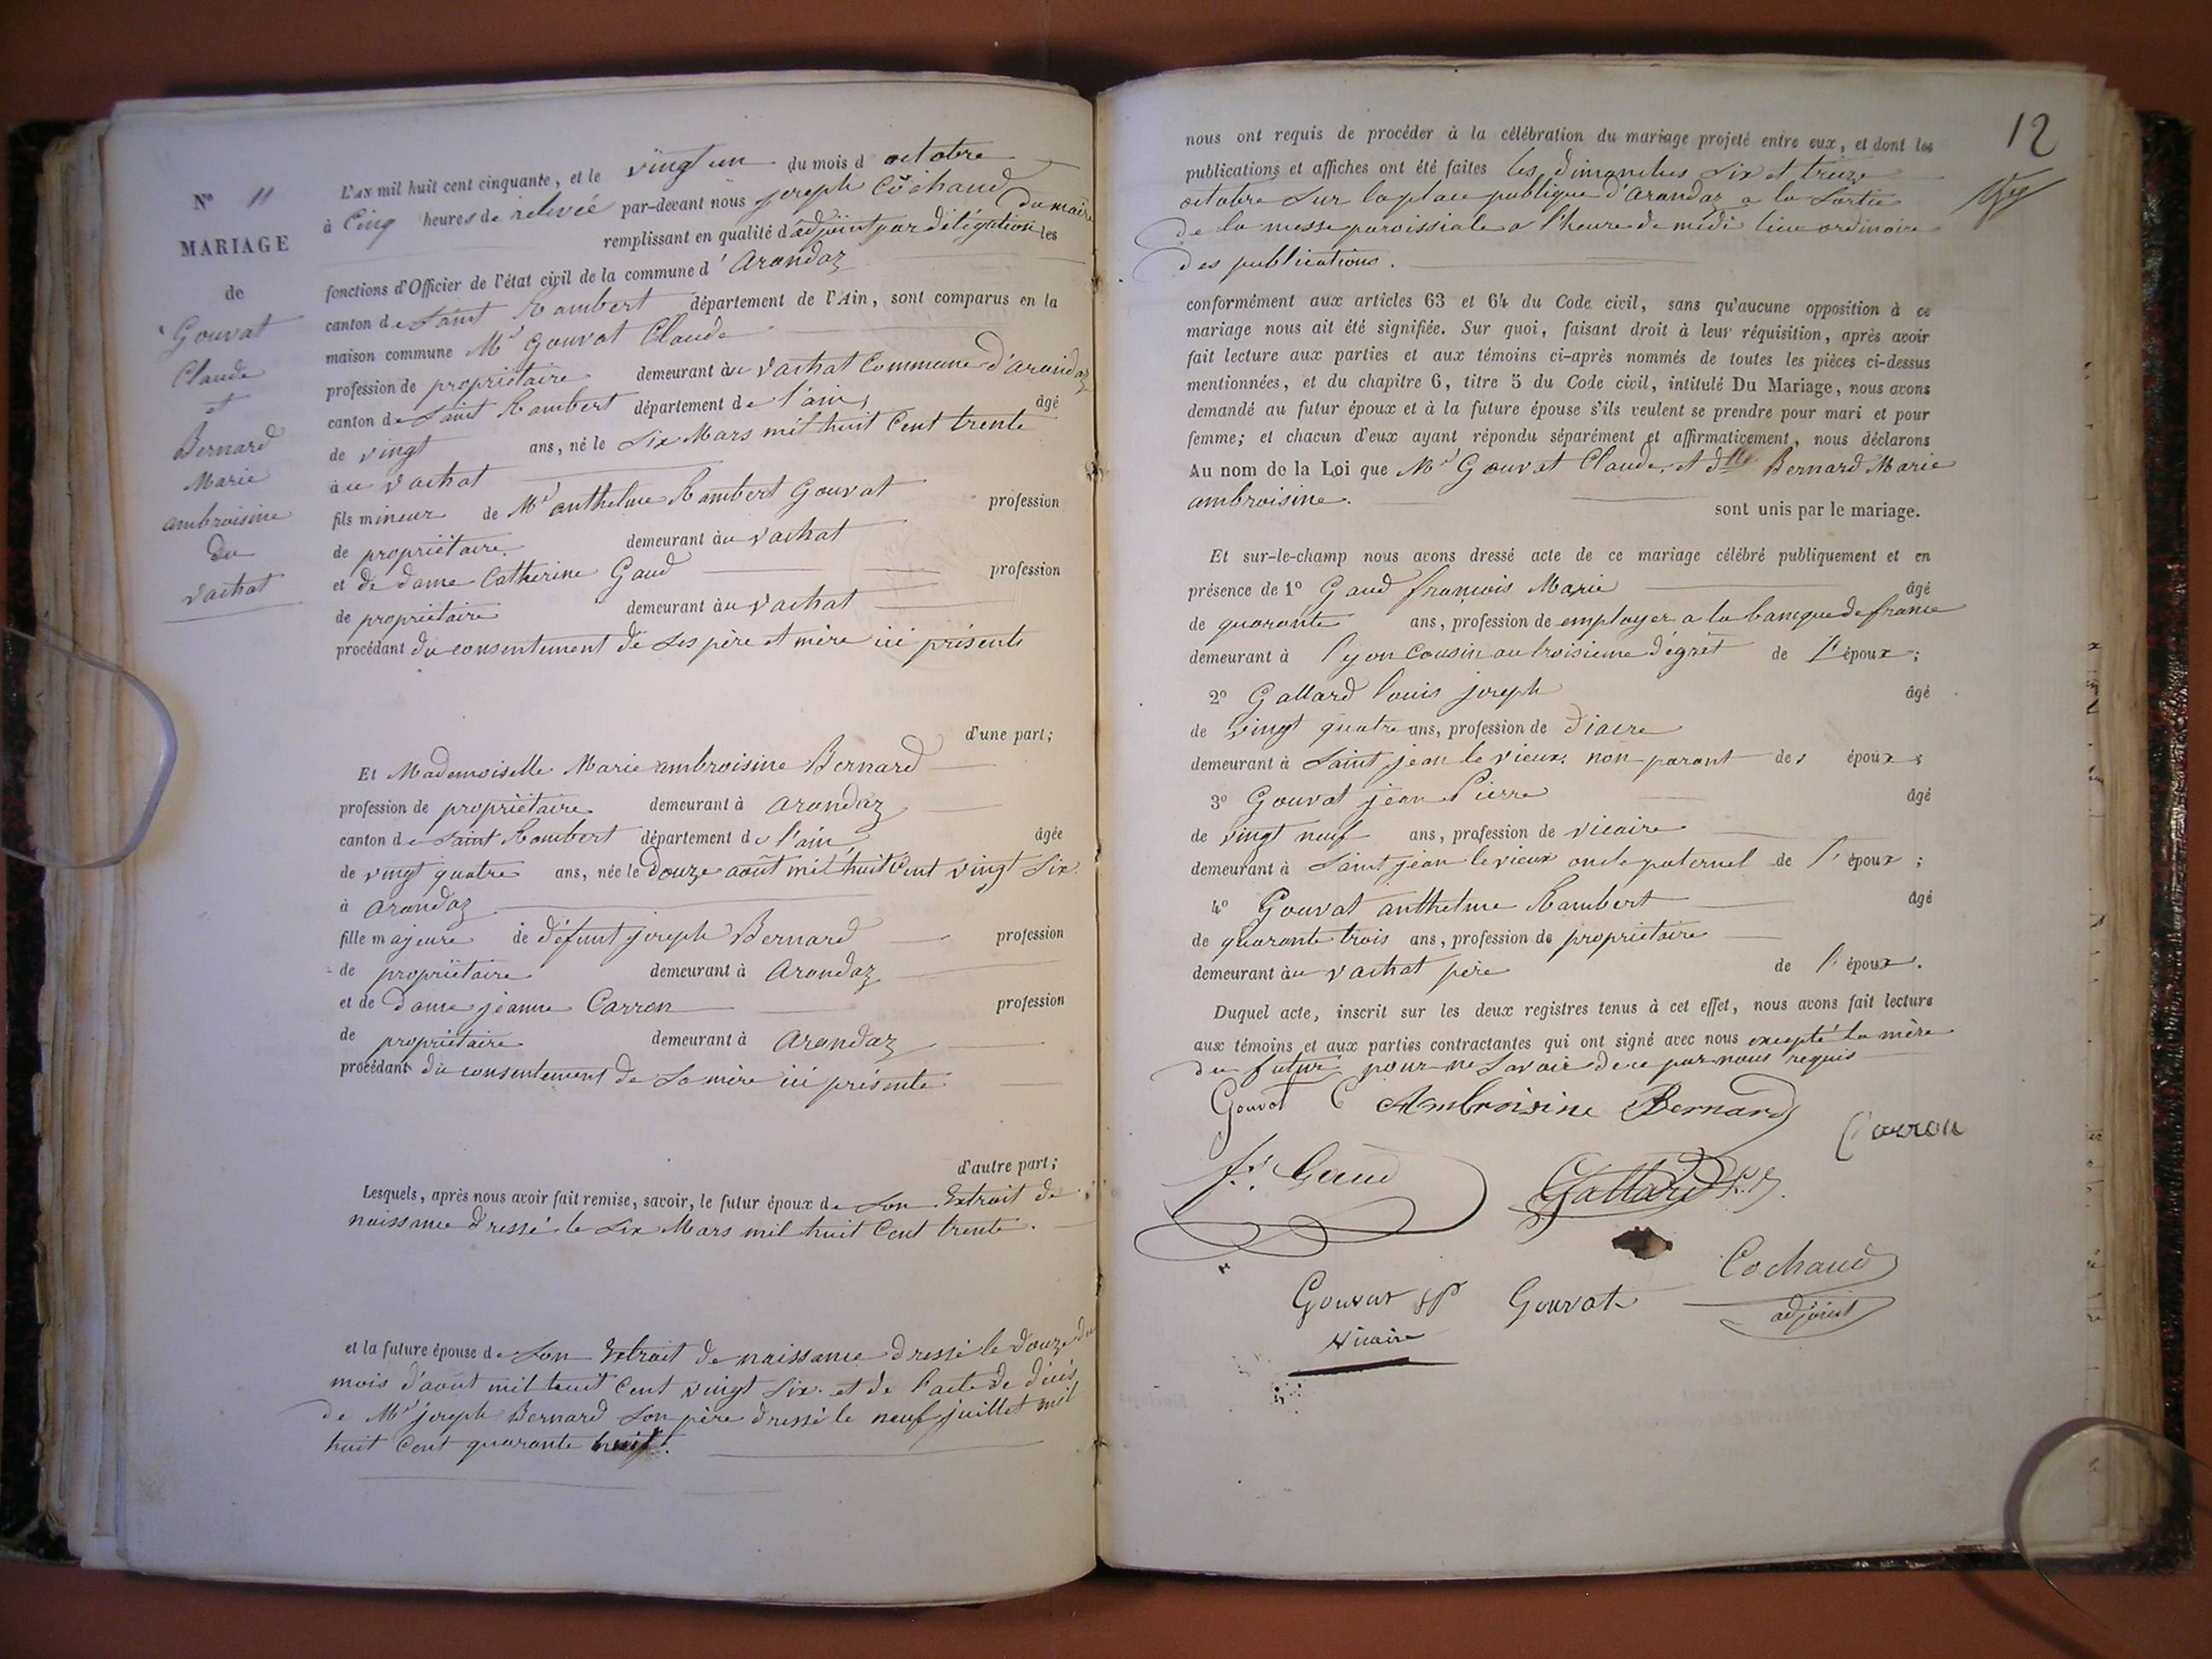 N° 11
MARIAGE
de
Gouvat
Claude
et
Bernard
Marie
ambroisine
du
vachat
L'AN mil huit cent cinquante, et le vingt un du mois d octobre
à Cinq heures de relevée par-devant nous joseph Cochaud
remplissant en qualité d'adjoint par délégation du maire les
fonctions d'Officier de l'état civil de la commune d'Arandaz
canton de Saint Rambert département de l'Ain, sont comparus en la
maison commune Mr Gouvat Claude
profession de propriétaire demeurant àu vachat Commune d'arandaz
canton de Saint Rambert département de l'ain, âgé
de vingt ans, né le Six Mars mil huit Cent trente
àu vachat
fils mineur de Mr anthelme Rambert Gouvat profession
de propriétaire demeurant àu vachat
et de dame Catherine Gaud profession
de propriétaire demeurant àu vachat
procédant du consentement de Ses père et mère ici présents
d'une part;
Et Mademoiselle Marie ambroisine Bernard
profession de propriétaire demeurant à arandaz
canton de Saint Rambert département de l'ain âgée
de vingt quatre ans, née le Douze août mil huit Cent vingt Six
à arandaz
fille majeure de défunt joseph Bernard profession
de propriétaire demeurant à Arandaz
et de dame jeanne Carron profession
de propriétaire demeurant à Arandaz
procédant du consentement de Sa mère ici présente
d'autre part;
Lesquels, après nous avoir fait remise, savoir, le futur époux de Son Extrait de
naissance dressé le Six Mars mil huit Cent trente.
et la future épouse de Son Extrait de naissance dressé le Douze du
mois d'août mil huit Cent vingt Six. et de l'acte de décès
de Mr joseph Bernard Son père dressé le neuf juillet mil
huit Cent quarante huit.
12
nous ont requis de procéder à la célébration du mariage projeté entre eux, et dont les
publications et affiches ont été faites les dimanches Six et treize
octobre Sur la place publique d'Arandaz a la Sortie
de la messe paroissiale a l'heure de midi lieu ordinaire
des publications.
conformément aux articles 63 et 64 du Code civil, sans qu'aucune opposition à ce
mariage nous ait été signifiée. Sur quoi, faisant droit à leur réquisition, après avoir
fait lecture aux parties et aux témoins ci-après nommés de toutes les pièces ci-dessus
mentionnées, et du chapitre 6, titre 5 du Code civil, intitulé Du Mariage, nous avons
demandé au futur époux et à la future épouse s'ils veulent se prendre pour mari et pour
femme; et chacun d'eux ayant répondu séparément et affirmativement, nous déclarons
Au nom de la Loi que Mr Gouvat Claude, et dlle Bernard Marie
ambroisine.
sont unis par le mariage.
Et sur-le-champ nous avons dressé acte de ce mariage célébré publiquement et en
présence de 1° Gaud françois Marie âgé
de quarante ans, profession de employer a la banque de france
demeurant à lyon Cousin au troisieme dégrét de l'époux;
2° Gallard louis joseph âgé
de vingt quatre ans, profession de diacre
demeurant à Saint jean le vieux. non parant des époux;
3° Gouvat jean Pierre âgé
de vingt neuf ans, profession de vicaire
demeurant à Saint jean le vieux oncle paternel de l'époux;
4° Gouvat anthelme Rambert âgé
de quarante trois ans, profession de propriétaire
demeurant àu vachat père de l'époux.
Duquel acte, inscrit sur les deux registres tenus à cet effet, nous avons fait lecture
aux témoins et aux parties contractantes qui ont signé avec nous excepté la mère
du futur pour ne Savoir de ce par nous requis
Gouvat C Ambroisine Bernard
Carron
fs Gaud Gallard
Cochaud
adjoint
Gouvat jp Gouvat
vicaire